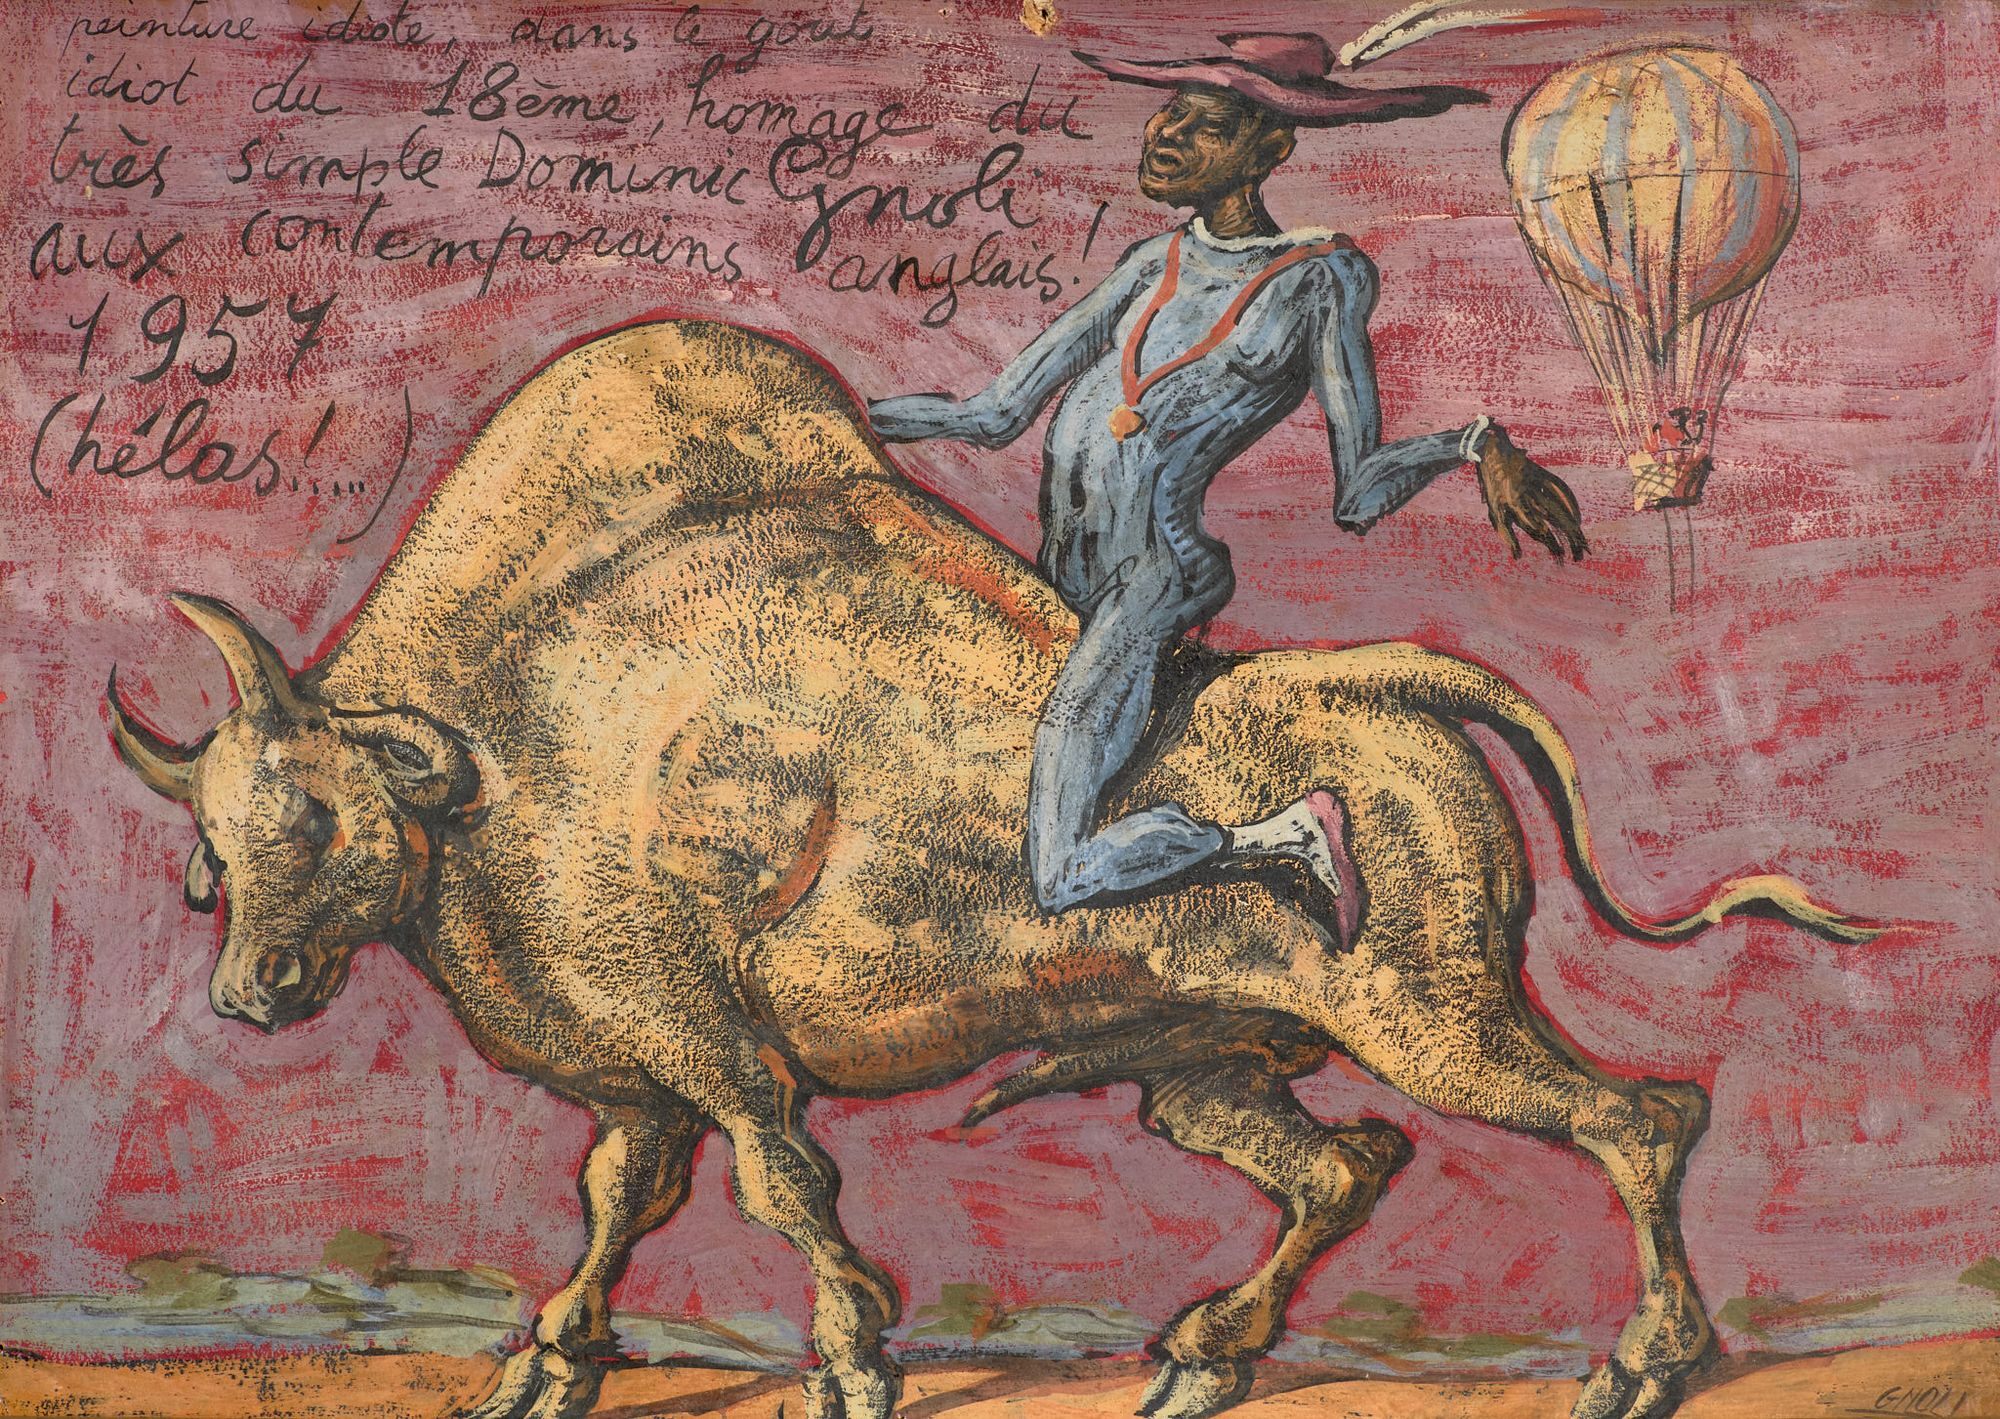 peinture idiote, dans le gout
idiot du 18ème, homage du
très simple Dominic Gnoli
aux contemporains anglais!
1957
(hélas!....)
GNOLI